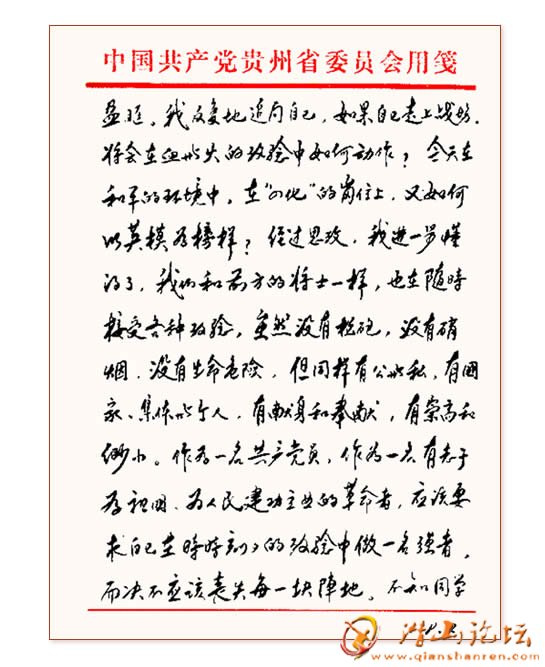 中国共产党贵州省委员会用笺
孟旺。我反复地追问自己，如果自己走上战场，
将会在血与火的考验中如何动作？今天在
和平的环境中，在“四化”的岗位上，又如何
以英模为榜样？经过思考，我进一步懂
得了，我们和前方的将士一样，也在随時
接受各种考验，虽然没有枪砲，没有硝
烟，没有生命危险，但同样有公与私，有國
家、集体与个人，有献身和奉献，有崇高和
渺小。作为一名共产党员，作为一名有志于
为祖国、为人民建功立业的革命者，应该要
求自己在時時刻刻的考验中做一名强者，
而决不应该丧失每一块阵地。不知同学
潜山论坛
www.qianshanren.com